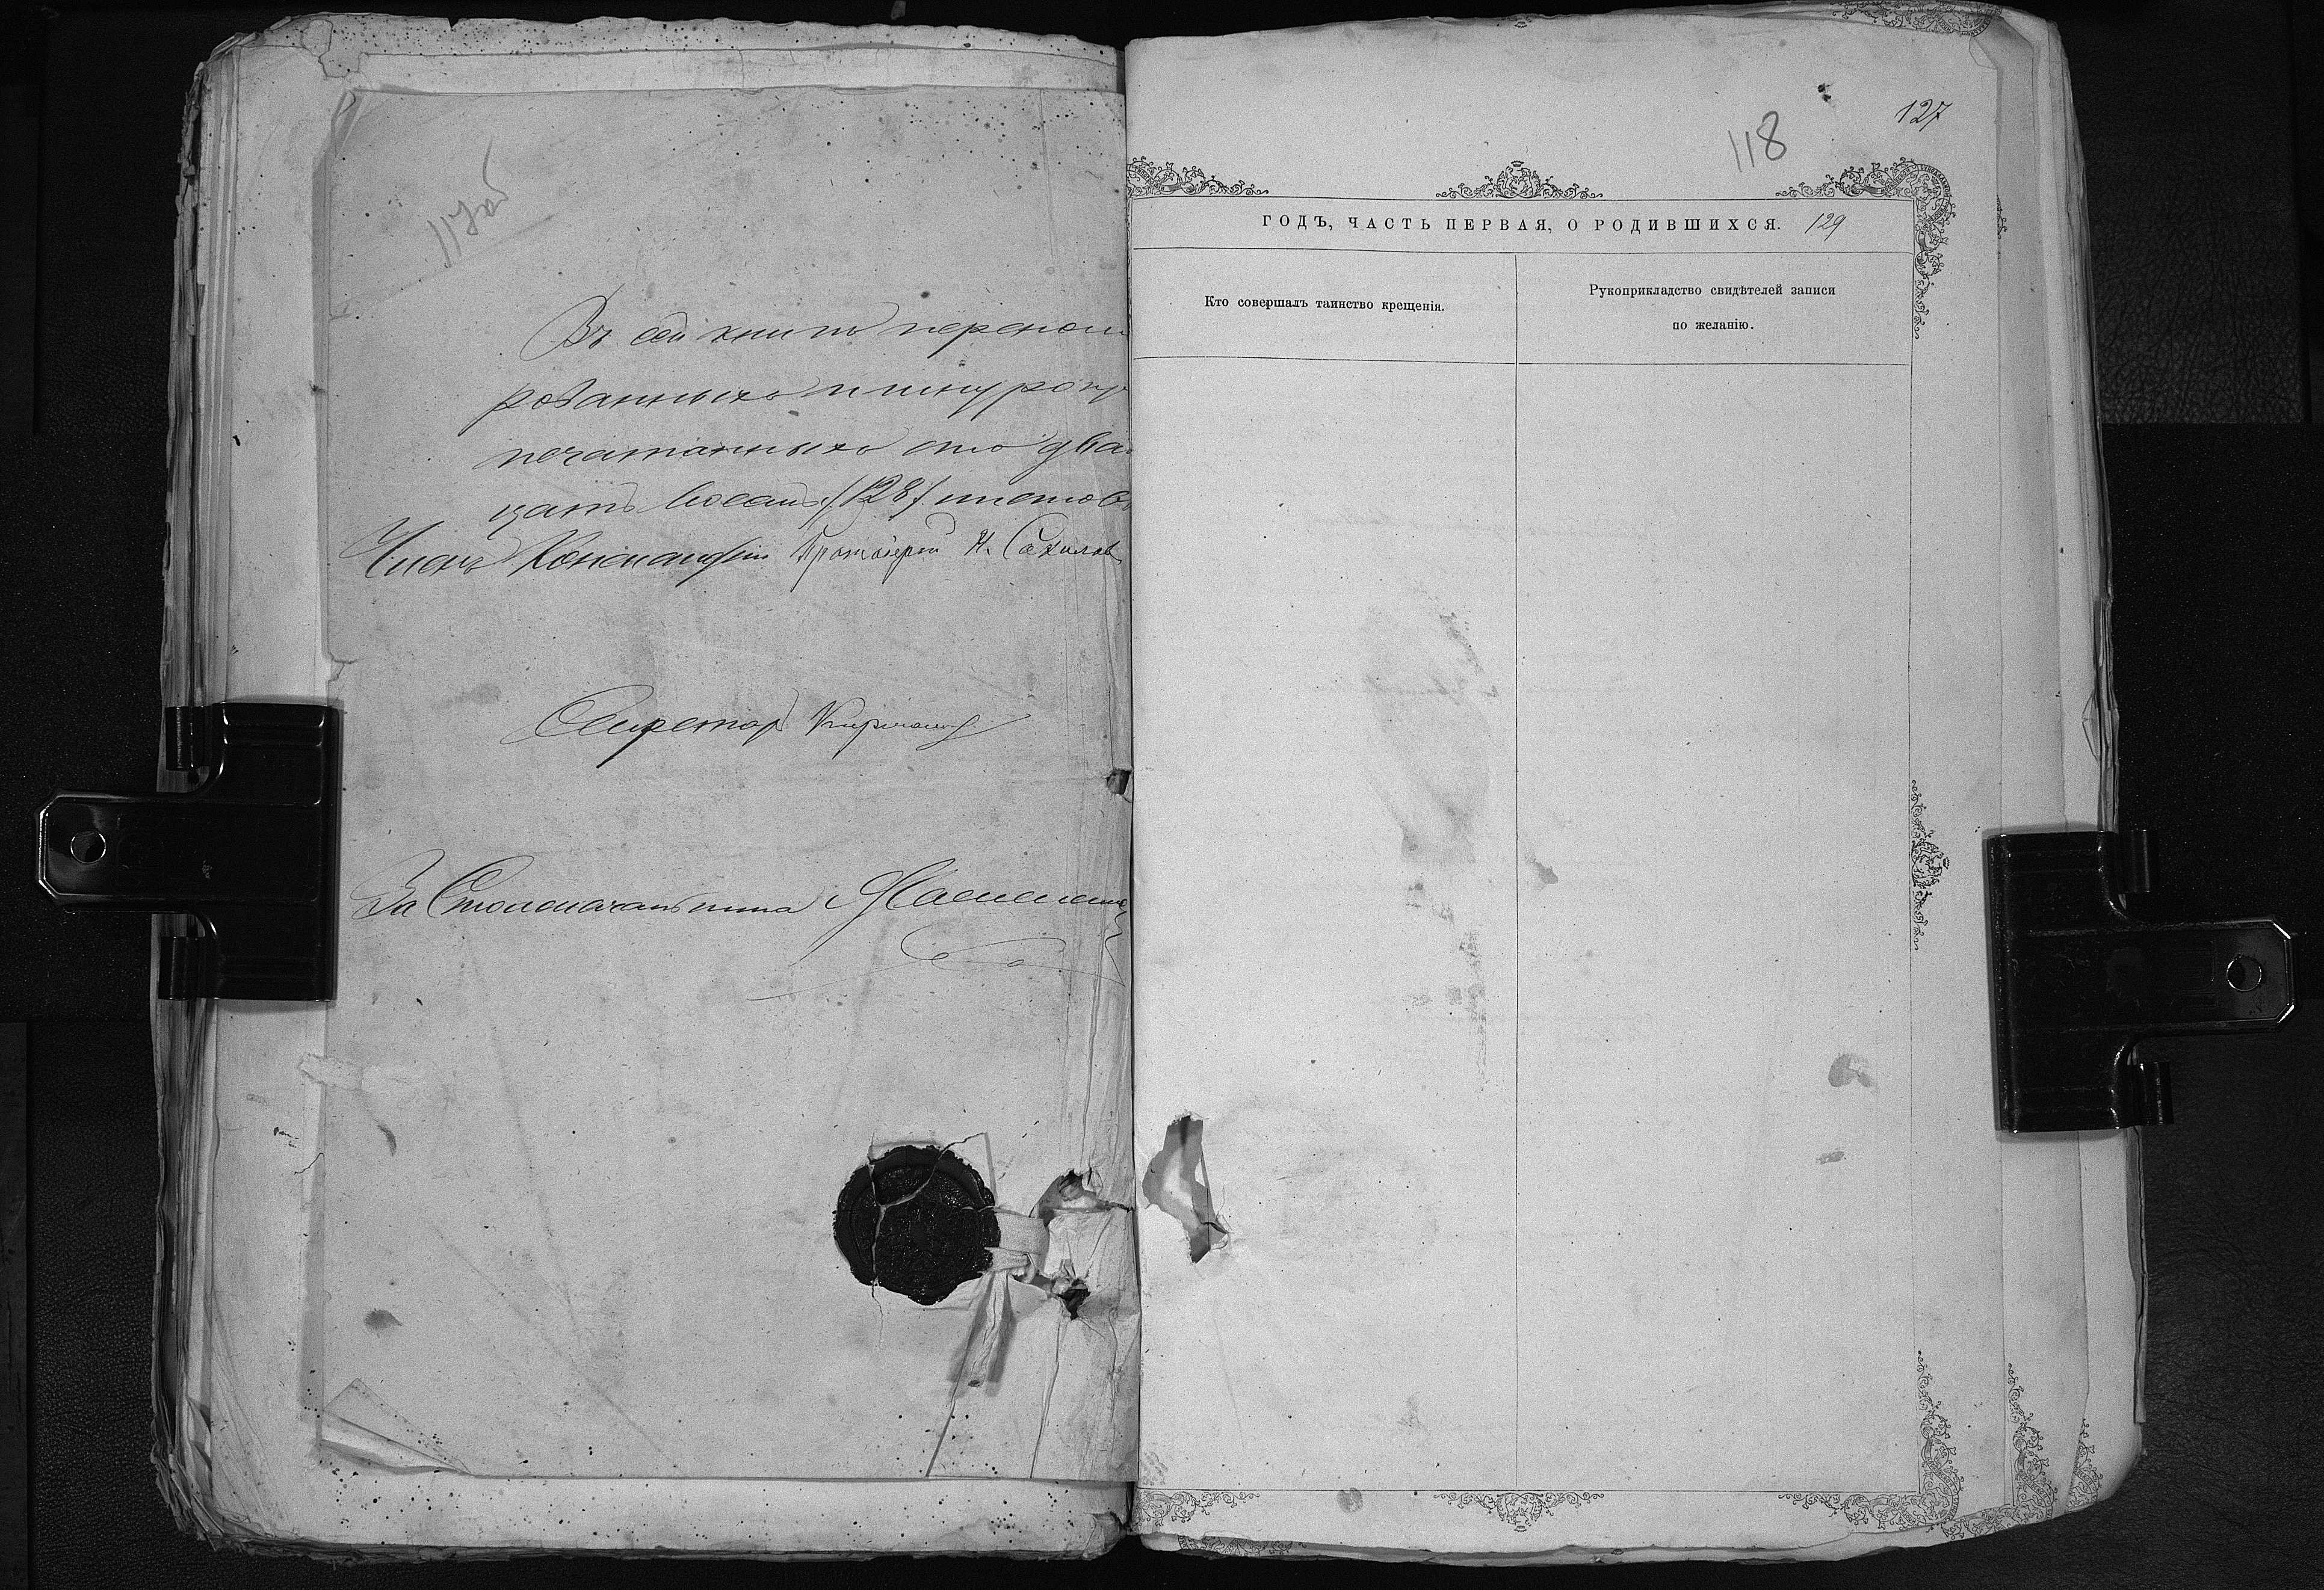 117 об
Въ сей книгѣ перено
рованныхъ и шнуро
печатанныхъ сто два
цать восемь /128/ листовъ
Членъ Консисторіи Протоіерей Н.
Секретарь
За Столоначальника
127
118
ГОДЪ, ЧАСТЬ ПЕРВАЯ, О РОДИВШИХСЯ. 129
Кто совершалъ таинство крещенія.
Рукоприкладство свидѣтелей записи
по желанію.